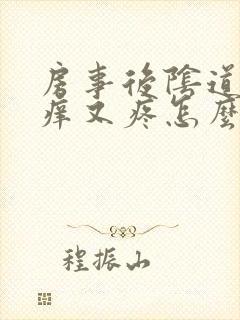 房事後陰道
痒又疼怎麼
程振山